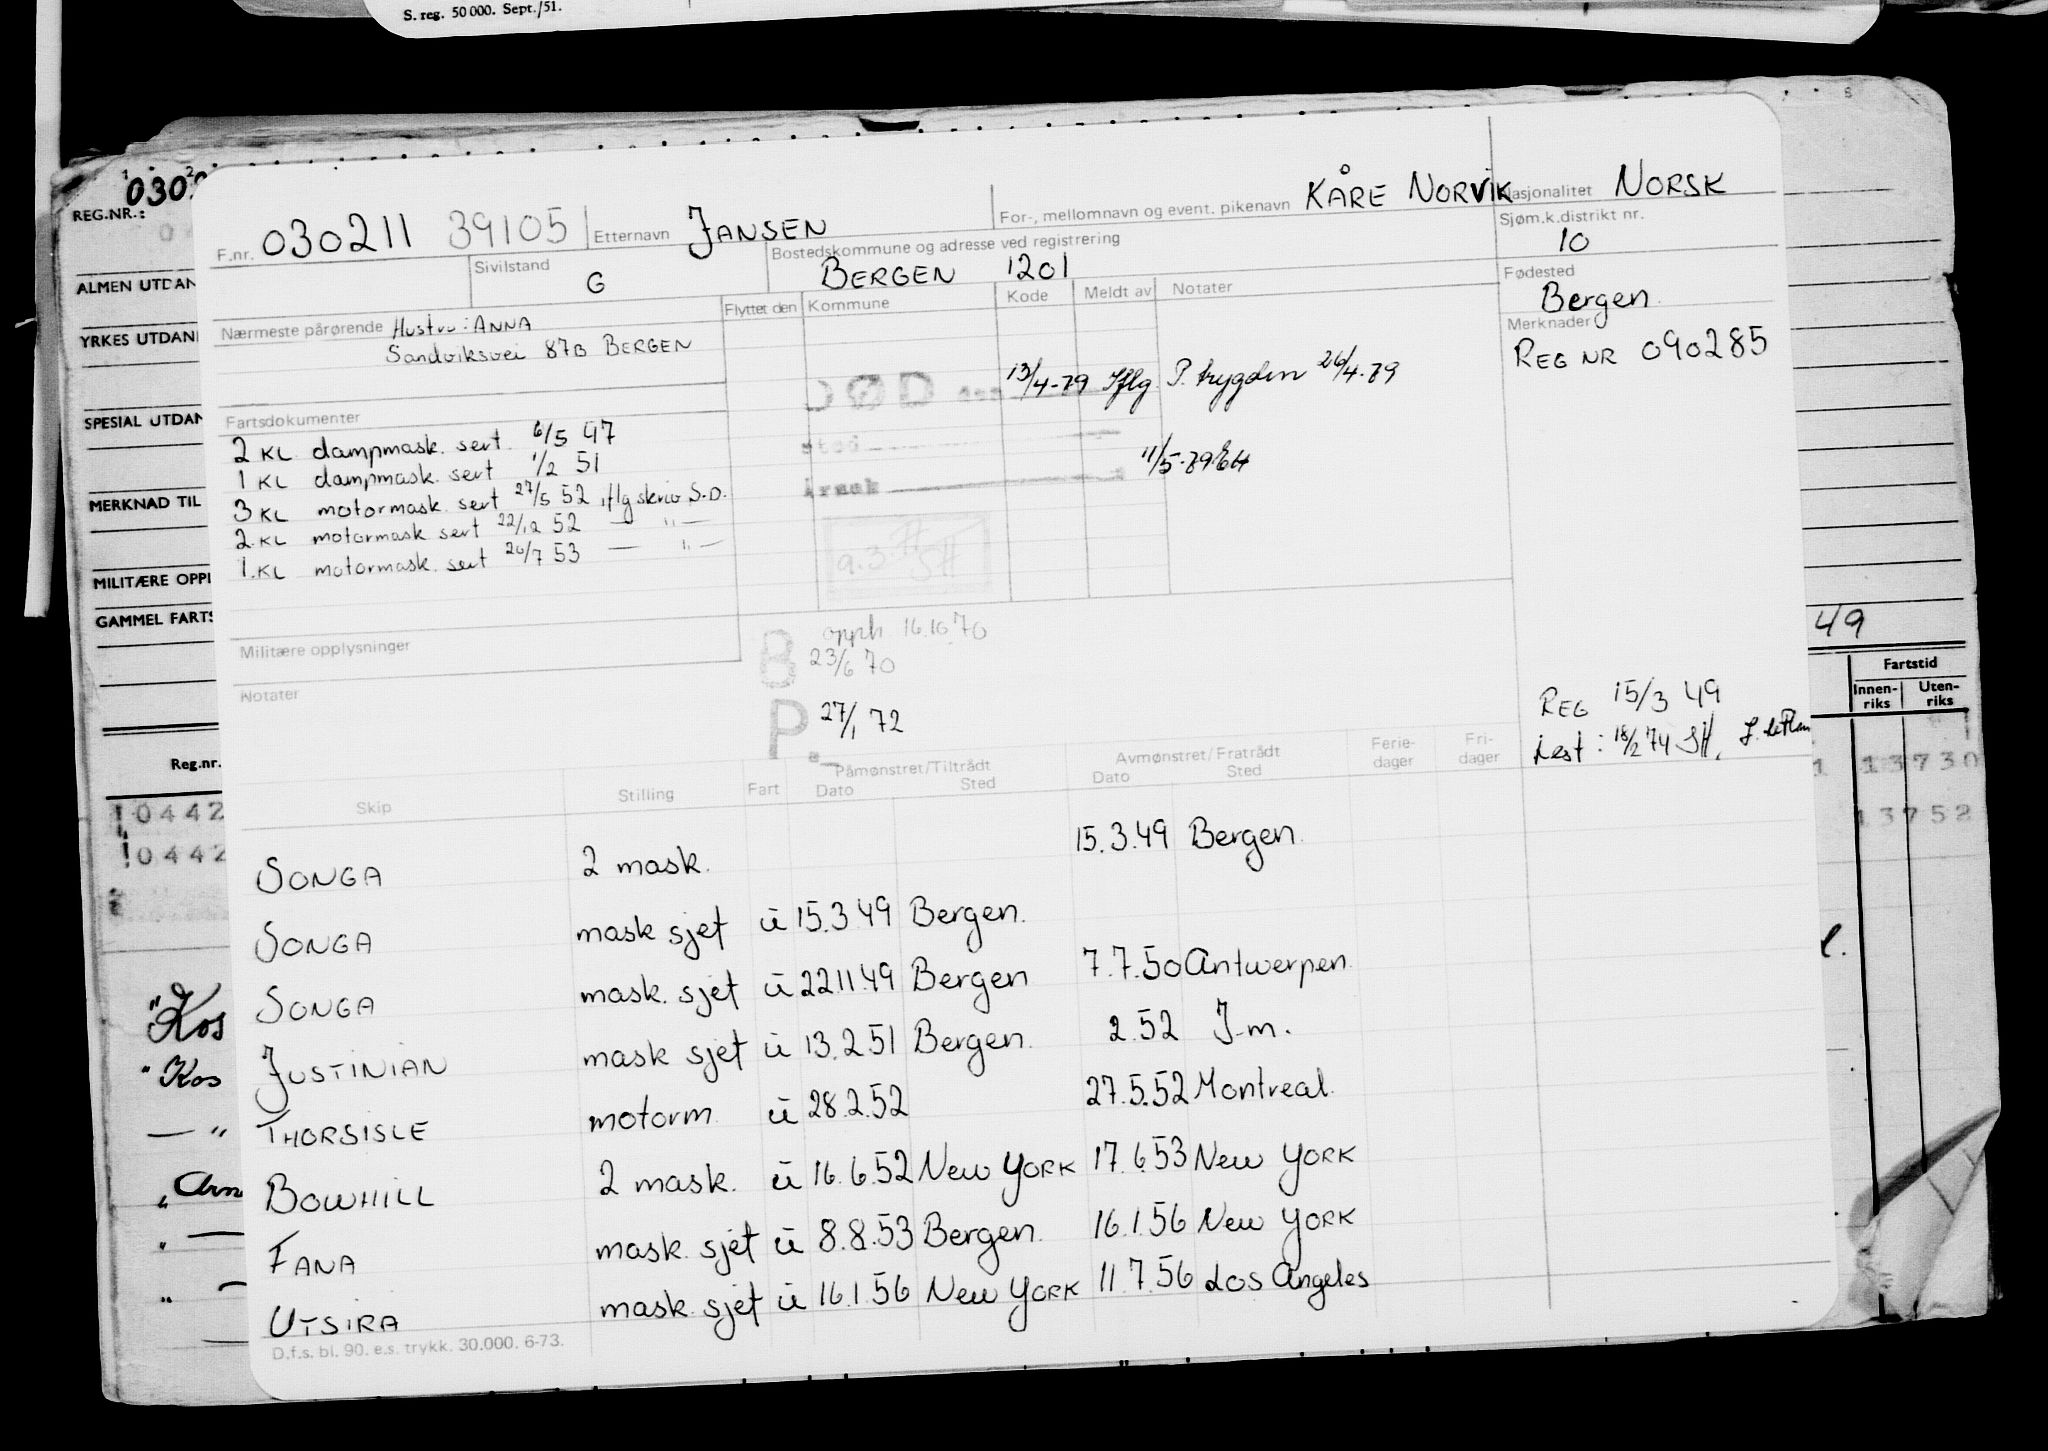 S. reg. 50 000. Sept./51.
REG.NR.:
F.nr. 030211 39105 Etternavn JANSEN For-, mellomnavn og event. pikenavn KÅRE NORVIK Nasjonalitet NORSK
Sivilstand G Bostedskommune og adresse ved registrering BERGEN 1201 Sjøm.k.distrikt nr. 10
Nærmeste pårørende Hustru: ANNA Flyttet den Kommune Kode Meldt av Notater Fødested Bergen
Sandviksvei 87B BERGEN Merknader REG NR 090285
DØD den 13/4-79 Iflg. P. trygden 26/4-79
sted
Årsak 11/5-79
Fartsdokumenter
2 KL dampmask. sert. 6/5 47
1 KL dampmask. sert 1/2 51
3 KL motormask. sert 27/5 52 iflg skriv S.D.
2. KL motormask sert 22/12 52 — " —
1. KL motormask. sert 20/7 53 — " —
Militære opplysninger
Notater
B opph 16.10.70
23/6 70
P. 27/1 72
REG 15/3 49
Lest: 18/2 74
Skip Stilling Fart Påmønstret/Tiltrådt Dato Sted Avmønstret/Fratrådt Dato Sted Ferie-dager Fri-dager
SONGA 2 mask. 15.3.49 Bergen.
SONGA mask sjef u 15.3 49 Bergen.
SONGA mask. sjef u 22.11.49 Bergen 7.7.50 Antwerpen.
JUSTINIAN mask sjef u 13.2.51 Bergen. 2.52 J.m.
THORSISLE motorm. u 28.2.52 27.5.52 Montreal.
BOWHILL 2 mask. u 16.6.52 New YORK 17.6.53 New YORK
FANA mask. sjef u 8.8.53 Bergen. 16.1.56 New YORK
UTSIRA mask. sjef u 16.1.56 New YORK 11.7.56 Los Angeles
D.f.s. bl. 90. e.s. trykk. 30.000. 6-73.
ALMEN UTDAN
YRKES UTDAN
SPESIAL UTDAN
MERKNAD TIL
MILITÆRE OPPL
GAMMEL FARTS
Reg.nr.
!0442
!0442
"Kos
" Kos
— "
49
Fartstid
Innen-riks Uten-riks
1 13730
13752